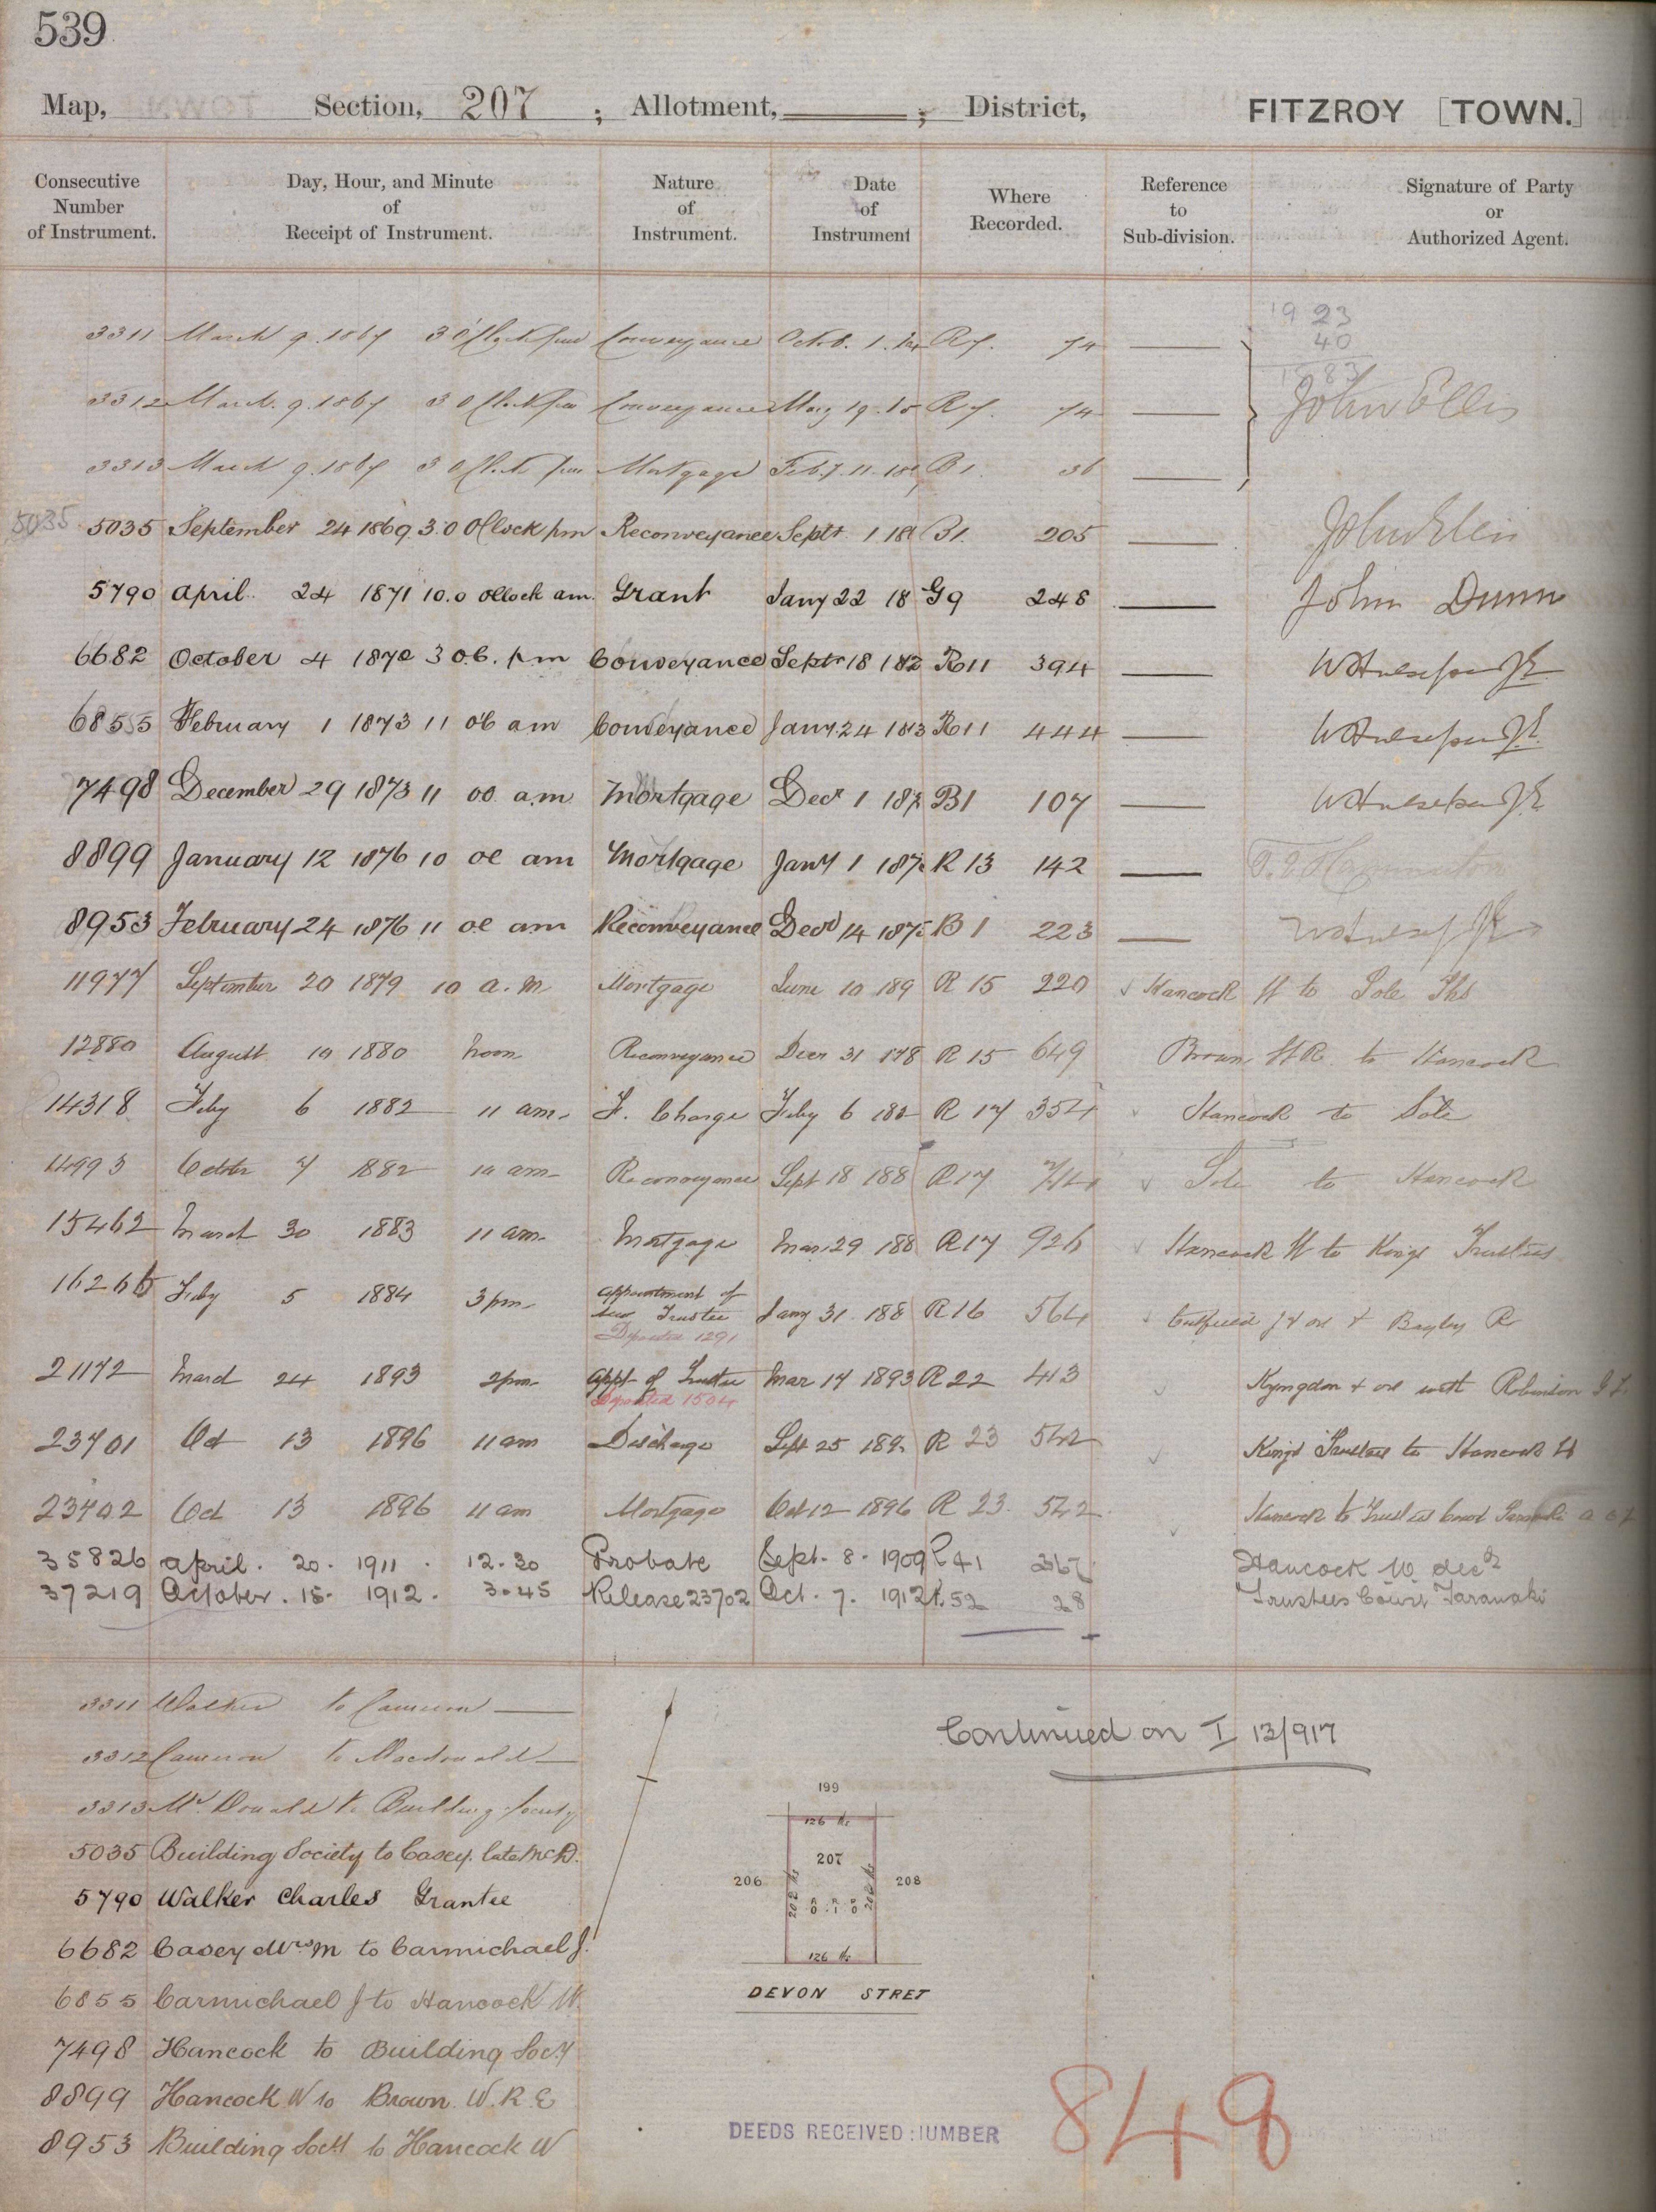 539
Map, Section, 207 ; Allotment, ; District, FITZROY [TOWN.]
Consecutive Number of Instrument. Day, Hour, and Minute of Receipt of Instrument. Nature of Instrument. Date of Instrument Where Recorded. Reference to Sub-division. Signature of Party or Authorized Agent.
19 23
40
3311 March 9. 1867 3 O'Clock pm Conveyance Octob. 1. R7. 74
3312 March. 9. 1867 3 O'Clock pm Conveyance May 19. R7. 74 John Ellis
3313 March 9. 1867 3 O'Clock pm Mortgage Feby. 11. B1. 36
5035 5035 September 24 1869 3.0 O'Clock pm Reconveyance Septr 1 18 B1. 205 John Ellis
5790 April. 24 1871 10.0 oClock am. Grant Jany 22 18 G9 248 John Dunn
6682 October 4 1872 3 o.C. pm Conveyance Septr 18 182 R11 394
6855 February 1 1873 11 oC am Conveyance Jany. 24 183 R11 444
7498 December 29 1873 11 oC a.m. Mortgage Decr 1 187 B1 107
8899 January 12 1876 10 oC am Mortgage Jany 1 187 R 13 142
8953 February 24 1876 11 oC am Reconveyance Decr 14 1875 B 1 223
11977 September 20 1879 10 a.m Mortgage June 10 189 R 15 220 Hancock W to Sole Ths
12880 August 10 1880 noon Reconveyance Decr 31 178 R 15 649 Brown W R. to Hancock
14318 Feby 6 1882 11 am. F. Charge Feby 6 182 R 17 354 Hancock to Sole
14993 October 7 1882 10 am Reconveyance Sept 18 188 R17 714 Sole to Hancock
15462 March 30 1883 11 am. Mortgage Mar. 29 188 R17 926 Hancock W to Kings Trustees
16266 Feby 5 1884 3pm. Appointment of
New Trustee Jany 31. 188 R16 564
Deposited 1291
21172 March 24 1893 2pm Appt of Trustee Mar 17 1893 R22 443 Kyngdon & or with Robinson
Deposited 1504
23701 Oct 13 1896 11 am Discharge Sept 25 189 R 23 542 Kings Trustees to Hancock W
23702 Oct 13 1896 11 am Mortgage Oct 12 1896 R 23. 542 Hancock to Trustees Court
35826 April. 20. 1911. 12.30 Probate Sept. 8. 1909 R 41 367 Hancock W. decd
37219 October. 15. 1912. 3.45 Release 23702 Oct. 7. 1912 R. 52 28 Trustees Court Taranaki
3311 Walker to Cameron
3312 Cameron to Macdonald
3313 McDonald to Building Society
5035 Building Society to Casey. late McD.
5790 Walker Charles Grantee
6682 Casey Mrs M to Carmichael J.
6855 Carmichael J to Hancock W.
7498 Hancock to Building Socy
8899 Hancock W to Brown. W. R. E
8953 Building Socy to Hancock W
Continued on I 13/917
199
126 lks
207
206
208
202 lks
202 lks
A R P
0 . 1 0
126 lks
DEVON STRET
DEEDS RECEIVED NUMBER 848